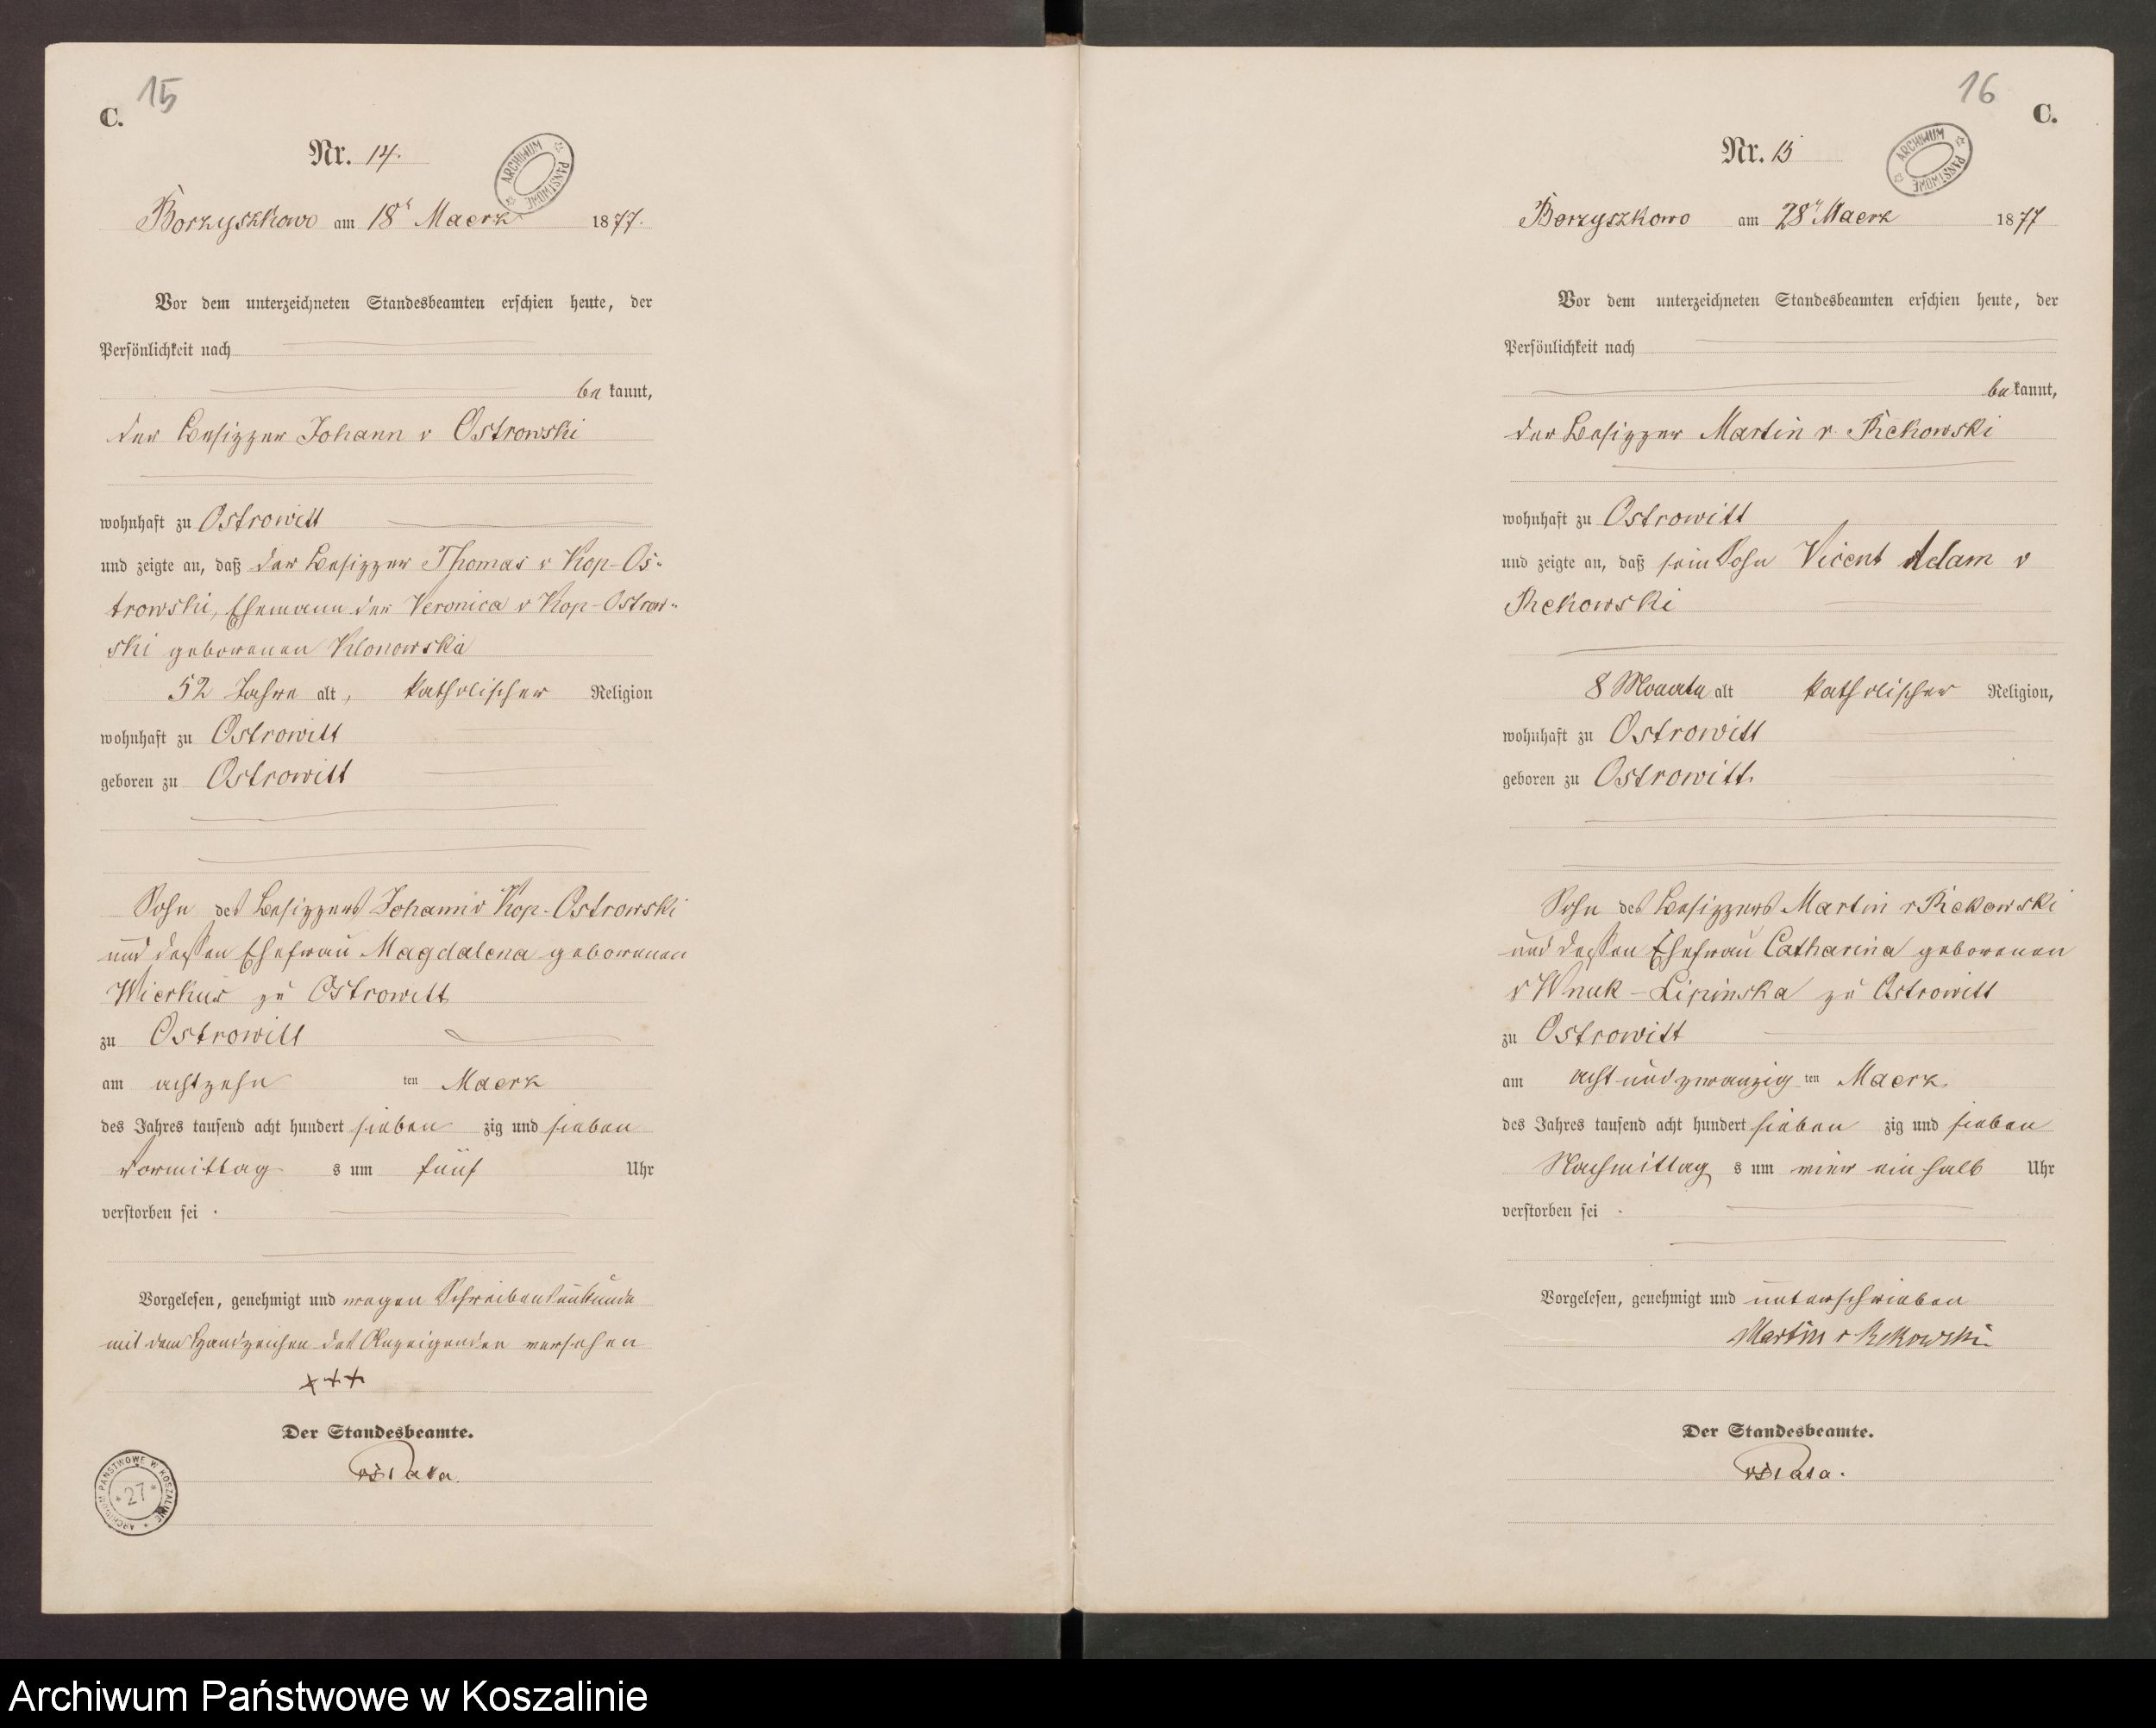 15
C.
Nr. 14.
ARCHIWUM PAŃSTWOWE
Borzyszkowo am 18t Maerz 1877.
Vor dem unterzeichneten Standesbeamten erschien heute, der
Persönlichkeit nach
be kannt,
der Besizzer Johann v Ostrowski
wohnhaft zu Ostrowitt
und zeigte an, daß der Besizzer Thomas v Kop-Os-
trowski, Ehemann der Veronica v Kop-Ostrow-
ski geborenen Klonowska
52 Jahre alt, katholischer Religion
wohnhaft zu Ostrowitt
geboren zu Ostrowitt
Sohn des Besizzers Johann v Kop-Ostrowski
und dessen Ehefrau Magdalena geborenen
Wierkus zu Ostrowitt
zu Ostrowitt
am achtzehn ten Maerz
des Jahres tausend acht hundert sieben zig und sieben
Vormittag s um fünf Uhr
verstorben sei .
Vorgelesen, genehmigt und wegen Schreibensunkunde
mit dem Handzeichen des Anzeigenden versehen
+++
Der Standesbeamte.
ARCHIWUM PAŃSTWOWE W KOSZALINIE
27
16
C.
Nr. 15
ARCHIWUM PAŃSTWOWE
Borzyszkowo am 28t Maerz 1877
Vor dem unterzeichneten Standesbeamten erschien heute, der
Persönlichkeit nach
be kannt,
der Besizzer Martin v. Rekowski
wohnhaft zu Ostrowitt
und zeigte an, daß sein Sohn Vicent Adam v
Rekowski
8 Monate alt katholischer Religion,
wohnhaft zu Ostrowitt
geboren zu Ostrowitt.
Sohn des Besizzers Martin v Rekowski
und dessen Ehefrau Catharina geborenen
v Wnuk-Lipinska zu Ostrowitt
zu Ostrowitt
am acht und zwanzig ten Maerz
des Jahres tausend acht hundert sieben zig und sieben
Nachmittag s um vier ein halb Uhr
verstorben sei .
Vorgelesen, genehmigt und unterschrieben
Martin v Rekowski
Der Standesbeamte.
Archiwum Państwowe w Koszalinie